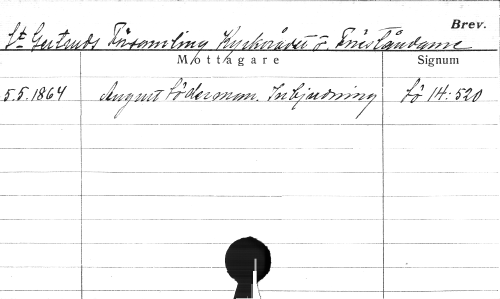 Brev.
St Gertruds Församling Kyrkorådet o Föreståndare
Mottagare Signum
5.5.1864 August Söderman. Inbjudning Sö 14:520